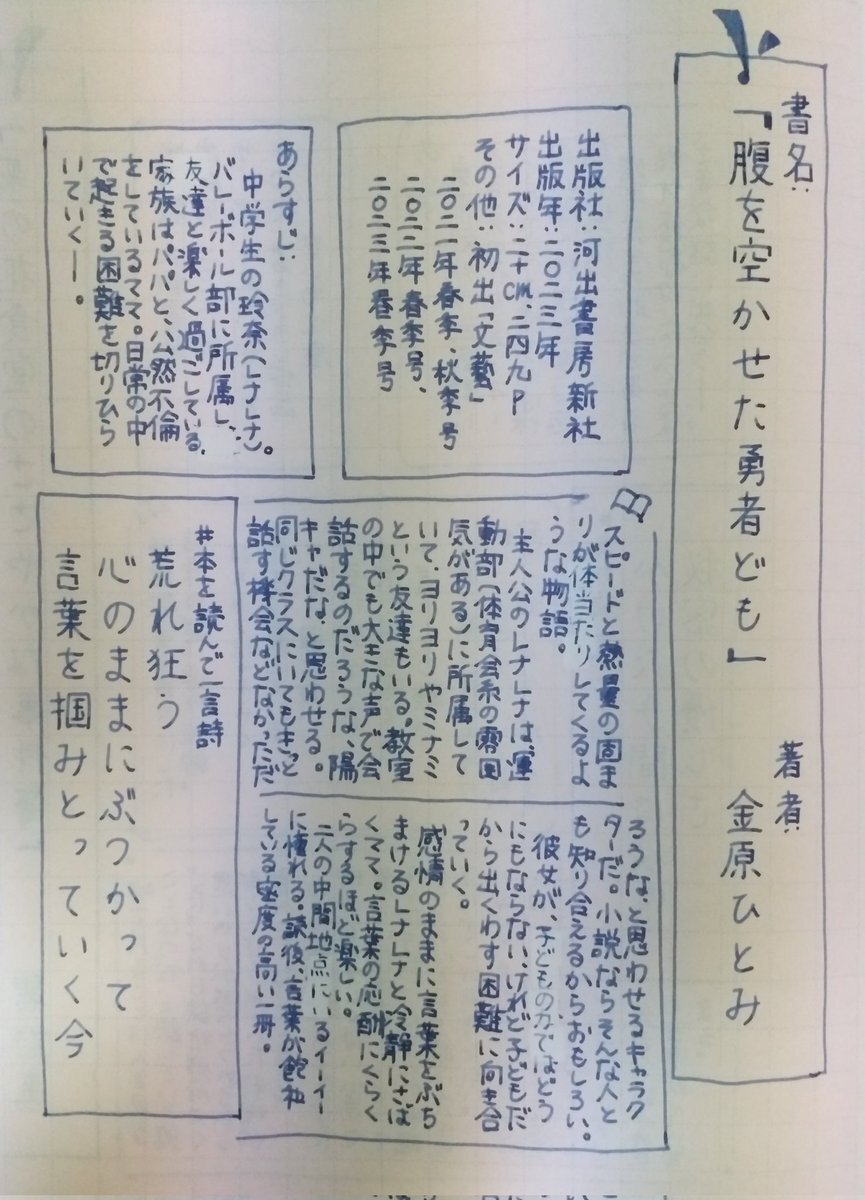 書名:
『腹を空かせた勇者ども』
著者:
金原ひとみ
出版社:河出書房新社
出版年:二〇二三年
サイズ:二十cm、二四九P
その他:初出「文藝」
二〇二一年春季、秋季号
二〇二二年春季号、
二〇二三年春季号
あらすじ:
中学生の玲奈(レナレナ)。
バレーボール部に所属し、
友達と楽しく過ごしている。
家族はパパと、公然不倫
をしているママ。日常の中
で起きる困難を切りひら
いていくー。
スピードと熱量の固ま
りが体当たりしてくるよ
うな物語。
主人公のレナレナは、運
動部(体育会系の雰囲
気がある)に所属して
いて、ヨリヨリやミナミ
という友達もいる。教室
の中でも大きな声で会
話するのだろうな、陽
キャだな、と思わせる。
同じクラスにいてもきっと
話す機会などなかっただ
ろうな、と思わせるキャラク
ターだ。小説ならそんな人と
も知り合えるからおもしろい。
彼女が、子どもの力ではどう
にもならない、けれど子どもだ
から出くわす困難に向き合
っていく。
感情のままに言葉をぶち
まけるレナレナと冷静にさば
くママ。言葉の応酬にくらく
らするほど楽しい。
二人の中間地点にいるイーイー
に憧れる。読後、言葉が飽和
している密度の高い一冊。
#本を読んで一言詩
荒れ狂う
心のままにぶつかって
言葉を掴みとっていく今